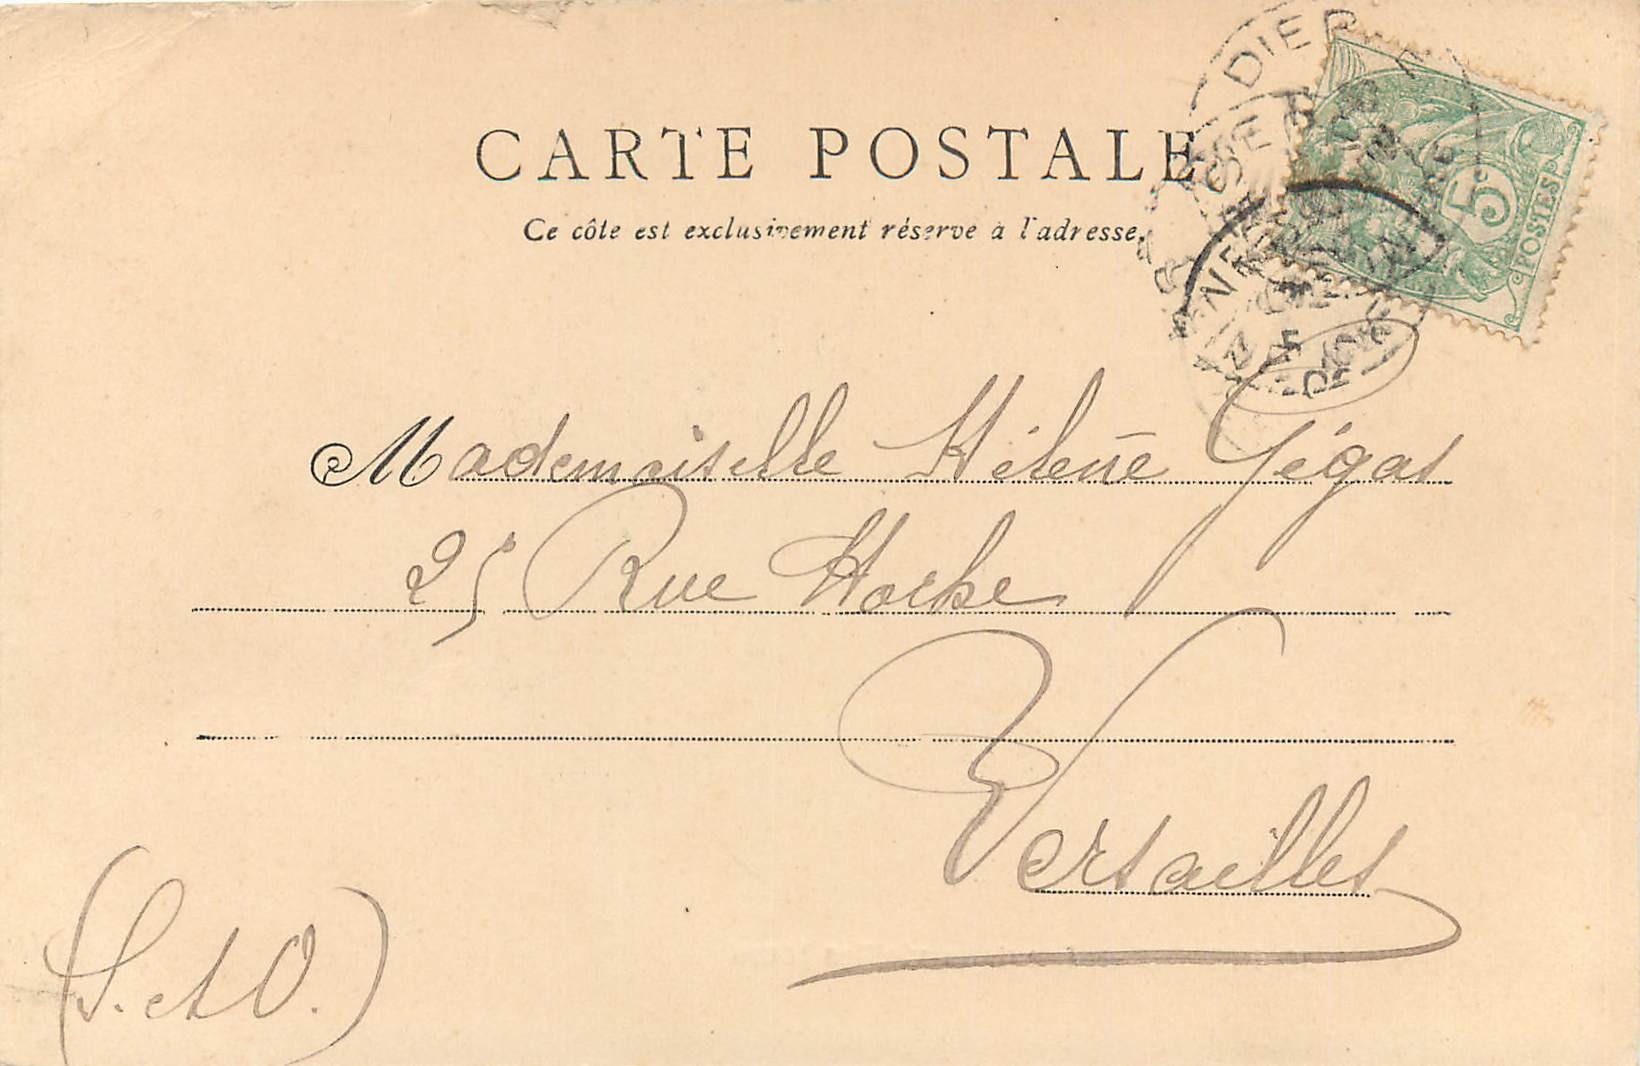 CARTE POSTALE
Ce côte est exclusivement réserve à l'adresse.
5
POSTES
DIER
Mademoiselle Hélène Gégat
25 Rue Hoche
Versailles
(S. et O.)